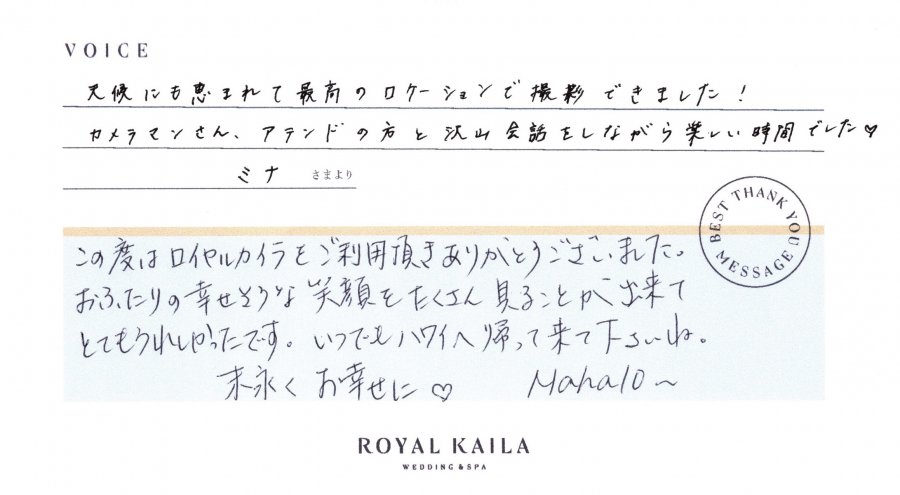 VOICE
天候にも恵まれて最高のロケーションで撮影できました!
カメラマンさん、アテンドの方と沢山会話をしながら楽しい時間でした♡
ミナ さまより
BEST THANK YOU MESSAGE
この度はロイヤルカイラをご利用頂きありがとうございました。
おふたりの幸せそうな笑顔をたくさん見ることが出来て
とてもうれしかったです。いつでもハワイへ帰って来て下さいね。
末永くお幸せに♡ Mahalo~
ROYAL KAILA
WEDDING & SPA